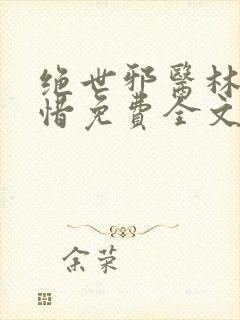 绝世邪醫林
惜免費全文
余荣